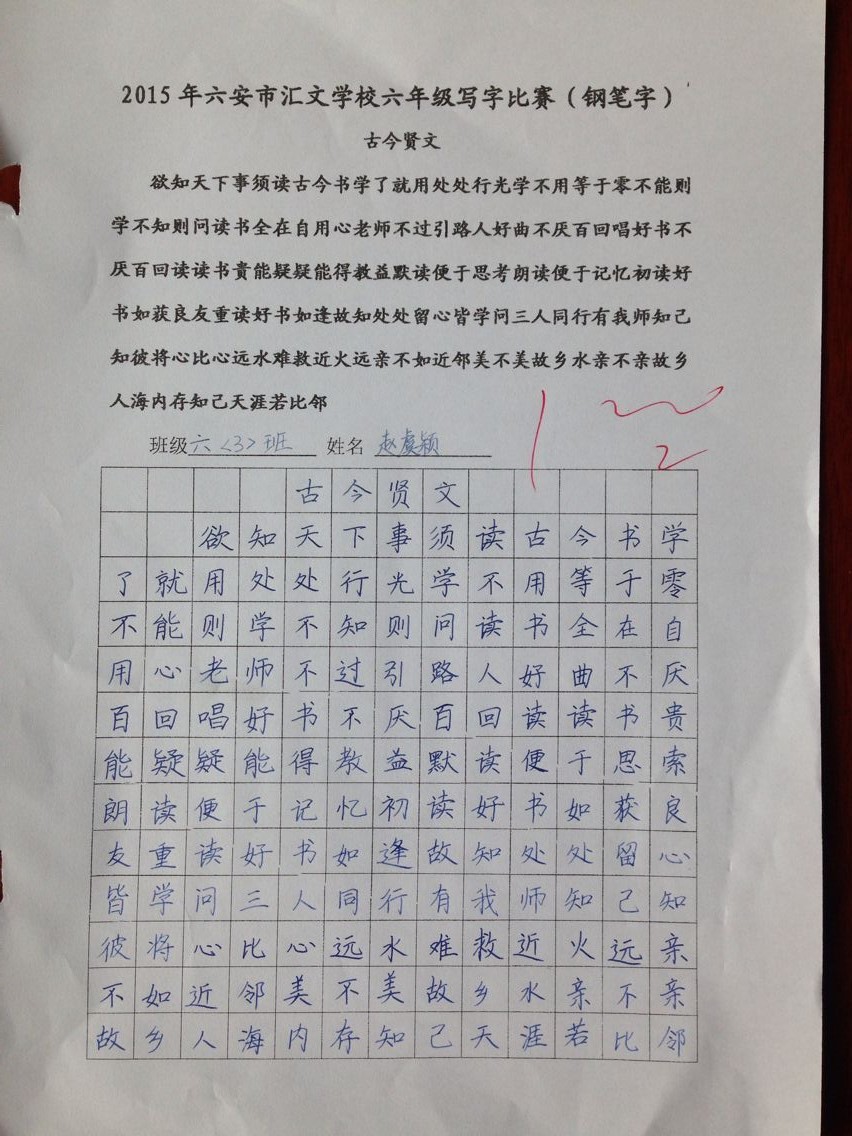 2015年六安市汇文学校六年级写字比赛（钢笔字）
古今贤文
欲知天下事须读古今书学了就用处处行光学不用等于零不能则
学不知则问读书全在自用心老师不过引路人好曲不厌百回唱好书不
厌百回读读书贵能疑疑能得教益默读便于思考朗读便于记忆初读好
书如获良友重读好书如逢故知处处留心皆学问三人同行有我师知己
知彼将心比心远水难救近火远亲不如近邻美不美故乡水亲不亲故乡
人海内存知己天涯若比邻
班级六〈3〉班 姓名赵虞颖
古今贤文
欲知天下事须读古今书学
了就用处处行光学不用等于零
不能则学不知则问读书全在自
用心老师不过引路人好曲不厌
百回唱好书不厌百回读读书贵
能疑疑能得教益默读便于思索
朗读便于记忆初读好书如获良
友重读好书如逢故知处处留心
皆学问三人同行有我师知己知
彼将心比心远水难救近火远亲
不如近邻美不美故乡水亲不亲
故乡人海内存知己天涯若比邻